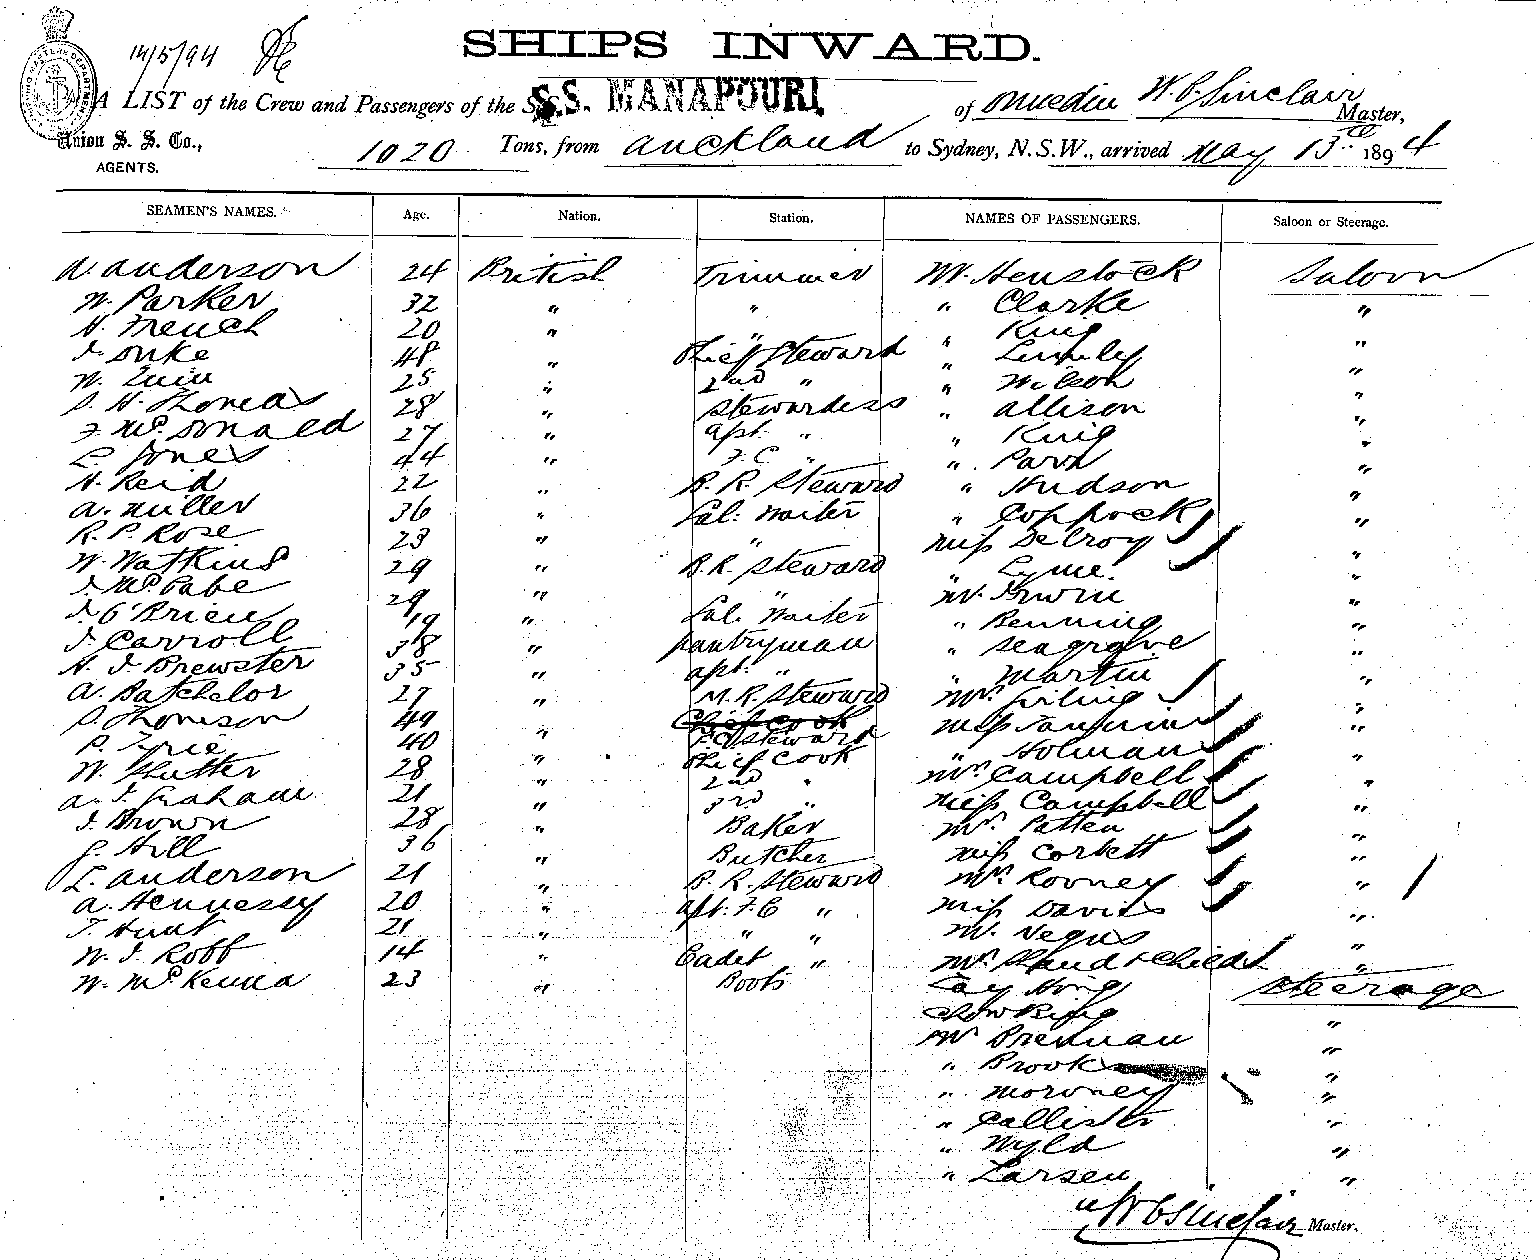 14/5/94
SHIPS INWARD.
A LIST of the Crew and Passengers of the S.S. MANAPOURI of Dunedin W. C. Sinclair Master,
Union S. S. Co., AGENTS. 1020 Tons, from Auckland to Sydney, N.S.W., arrived May 13th 1894
SEAMEN'S NAMES. Age. Nation. Station. NAMES OF PASSENGERS. Saloon or Steerage.
A. Anderson 24 British Trimmer Mr. Henstock Saloon
W. Parker 32 " " " Clarke "
H. French 20 " " " King "
48 " Chief Steward " Lumley "
W. Quin 25 " 2nd " " Wilson "
S. H. Thomas 28 " Stewardess " Allison "
F. McDonald 27 " apt. " " King "
L. Jones 44 " F.C. " " "
H. Reid 22 " B. R. Steward " Hudson "
A. Miller 36 " Sal. Waiter " Coppock "
R. P. Rose 23 " " Miss Delroy "
W. Watkins 29 " B.R. Steward " Lyme. "
J. McCabe 29 " " Mr. Irwin "
J. O'Brien 19 " Sal. Waiter " Benning "
J. Carroll 38 " Pantryman " Seagrave "
H. J. Brewster 35 " apt. " " Martin "
A. Batchelor 27 " M. R. Steward Mrs. "
S. Thomson 49 " Chief Cook F.C. Steward Miss "
P. Tyrie 40 " Chief Cook " Holman "
W. Shutter 28 " 2nd " Mrs. Campbell "
A. J. Graham 21 " 3rd " Miss Campbell "
J. Brown 28 " Baker Mrs. Patten "
G. Hill 36 " Butcher Miss Corbett "
L. Anderson 21 " B. R. Steward Mrs. Rooney "
A. Hennessy 20 " apt. F.C " Miss Davies "
T. Hunt 21 " " " Mr. Negus "
W. J. Robb 14 " Cadet " Mrs. & Child "
W. McKenna 23 " Boots Lay Hong Steerage
Chow King "
Mr Brennan "
" Brook "
" Moroney "
" Callister "
" Wyld "
" Larsen "
W C Sinclair Master.